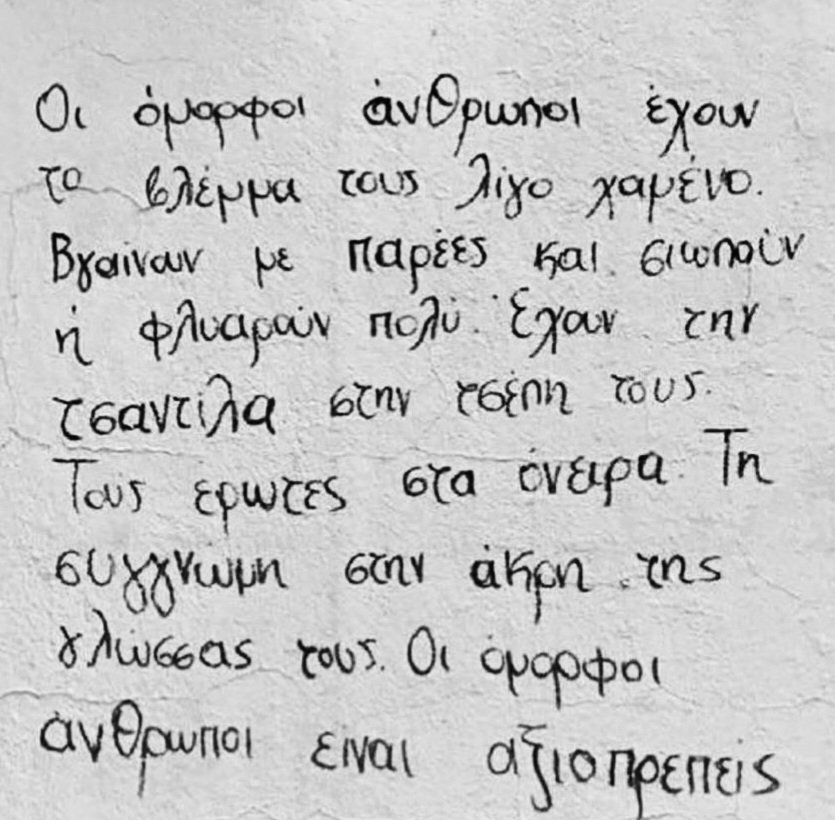 Οι όμορφοι άνθρωποι έχουν
το βλέμμα τους λίγο χαμένο.
Βγαίνουν με παρέες και σιωπούν
ή φλυαρούν πολύ. Έχουν την
τσαντίλα στην τσέπη τους.
Τους έρωτες στα όνειρα. Τη
συγγνώμη στην άκρη της
γλώσσας τους. Οι όμορφοι
άνθρωποι είναι αξιοπρεπείς